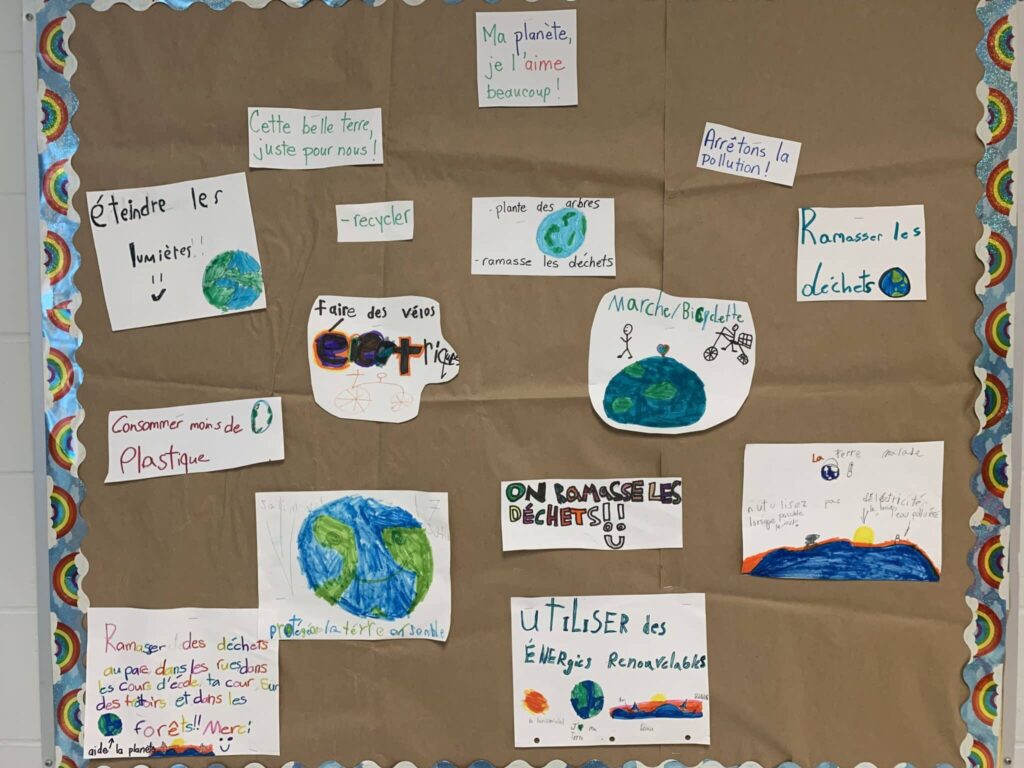 Ma planète,
je l'aime
beaucoup!
Cette belle terre,
juste pour nous!
Arrêtons la
pollution!
éteindre les
lumières!!
-recycler
-plante des arbres
-ramasse les déchets
Ramasser les
déchets
faire des vélos
électriques
Marche/Bicyclette
Consommer moins de
Plastique
ON RAMASSE LES
DÉCHETS!!
La terre malade
n'utilisez pas d'électricité
lorsque possible
l'eau polluée
protéger la terre ensemble
UTILISER des
ÉNERgies Renouvelables
Ramaser des déchets
au parc, dans les rues, dans
les cours d'école, ta cour, sur
des trotoirs et dans les
forêts!! Merci
aide la planète